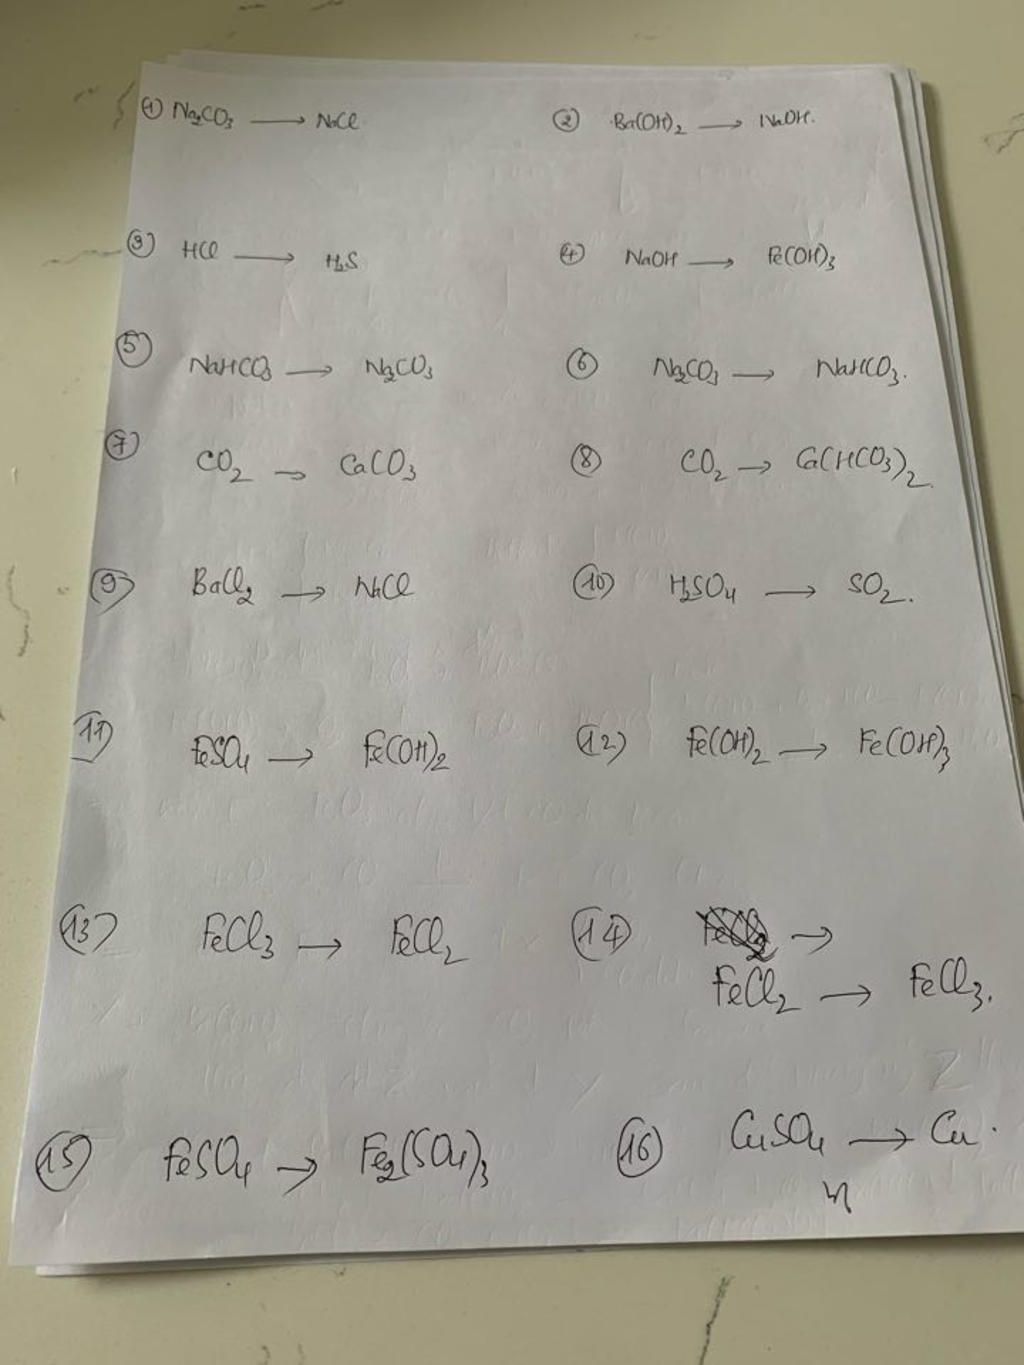 ① Na₂CO₃ → NaCl
② Ba(OH)₂ → NaOH.
③ HCl → H₂S
④ NaOH → Fe(OH)₃
⑤ NaHCO₃ → Na₂CO₃
⑥ Na₂CO₃ → NaHCO₃.
⑦ CO₂ → CaCO₃
⑧ CO₂ → Ca(HCO₃)₂.
⑨ BaCl₂ → NaCl
⑩ H₂SO₄ → SO₂.
⑪ FeSO₄ → Fe(OH)₂
⑫ Fe(OH)₂ → Fe(OH)₃
⑬ FeCl₃ → FeCl₂
⑭ →
FeCl₂ → FeCl₃.
⑮ FeSO₄ → Fe₂(SO₄)₃
⑯ CuSO₄ → Cu.